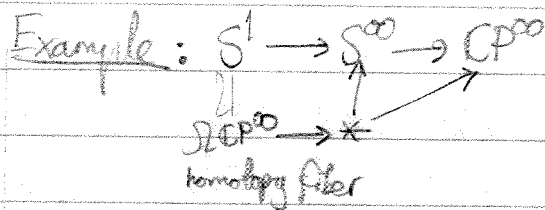 Example: S¹ → S^∞ → CP^∞
ΩCP^∞ → *
homotopy fiber